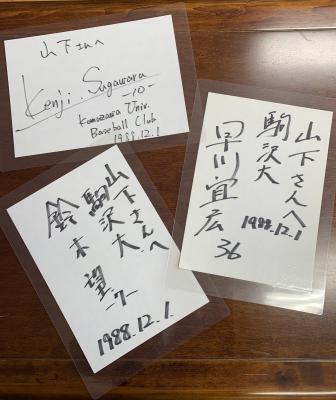 山下さんへ
Kenji. Sugawara
-10-
Komazawa Univ.
Baseball Club
1988.12.1
山下さんへ
駒沢大
早川宣広
1988.12.1
36
山下さんへ
駒沢大
鈴木望
-7-
1988.12.1.